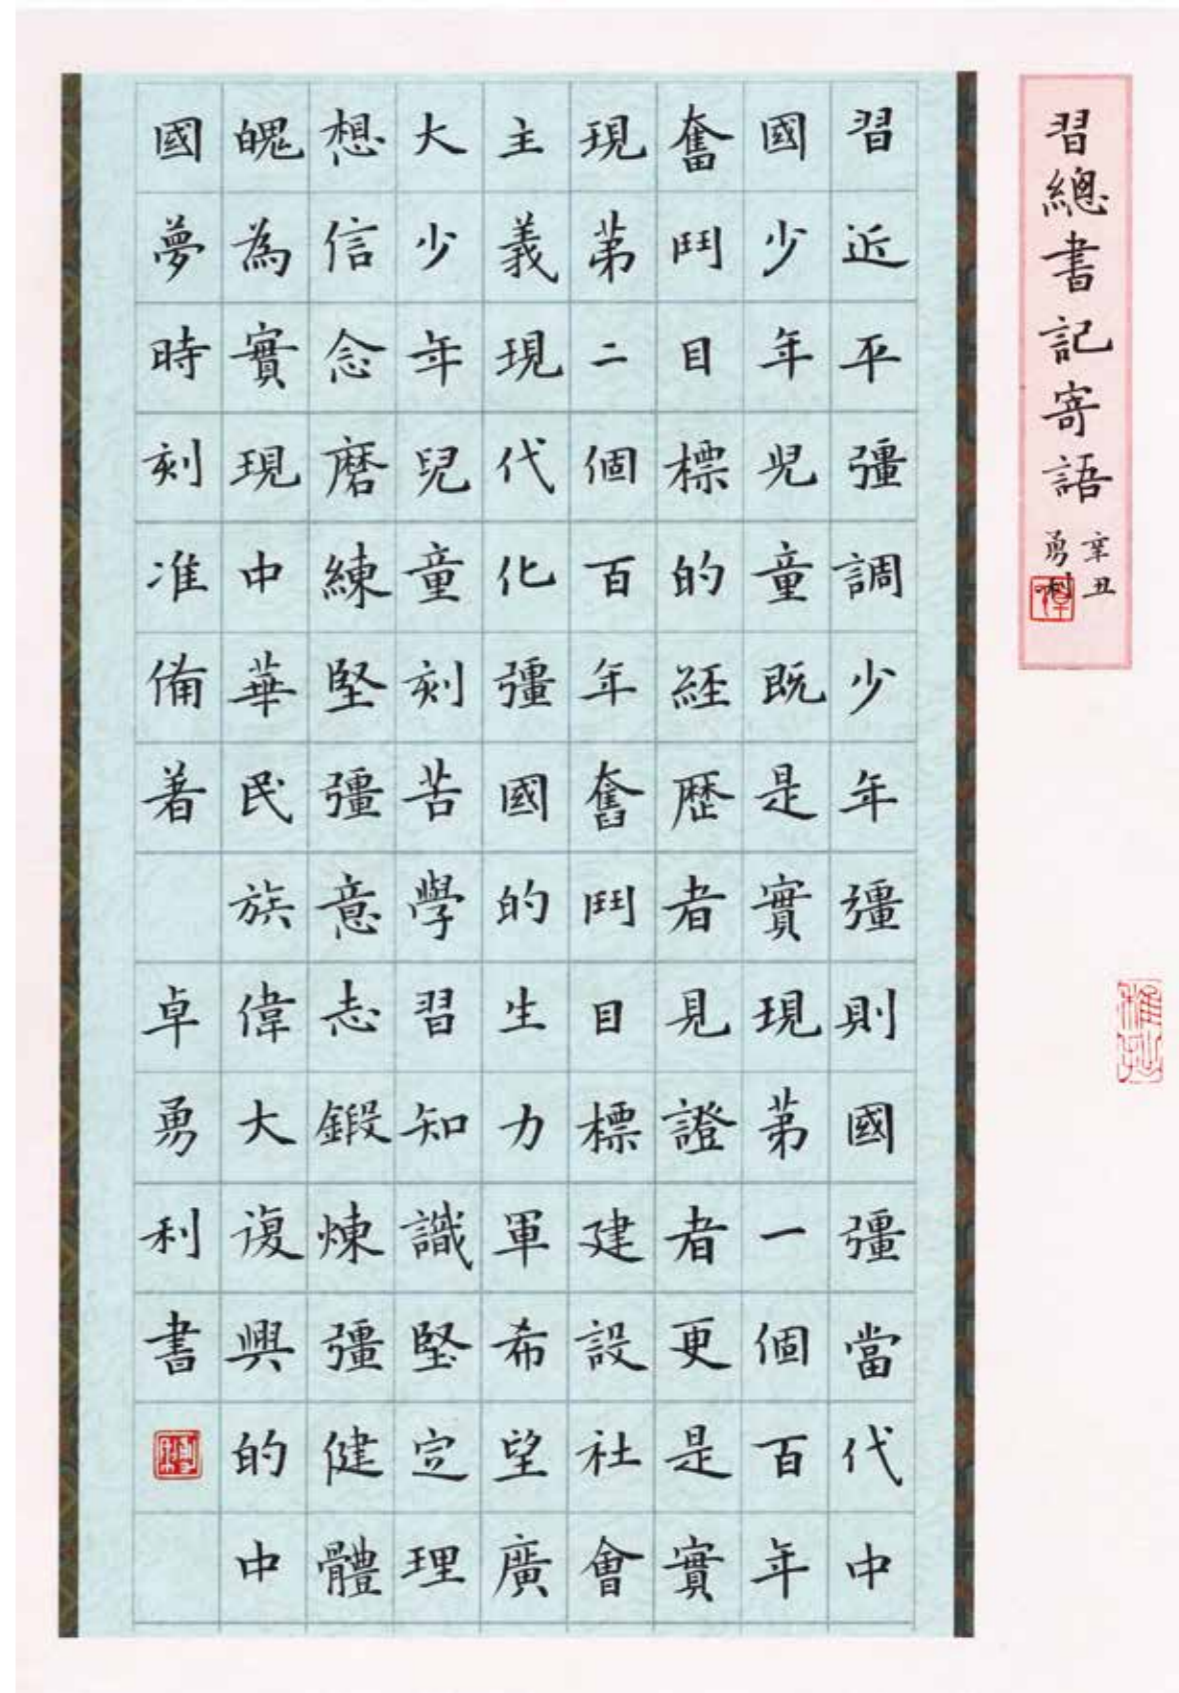 習總書記寄語
辛丑
勇利
習近平彊調少年彊則國彊當代中
國少年児童既是實現第一個百年
奮鬥目標的經歷者見證者更是實
現第二個百年奮鬥目標建設社會
主義現代化彊國的生力軍希望廣
大少年兒童刻苦學習知識堅定理
想信念磨練堅彊意志鍛煉彊健體
魄為實現中華民族偉大復興的中
國夢時刻准備著 卓勇利書